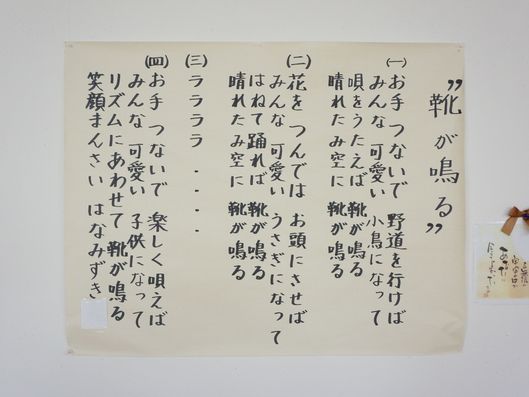 ”靴が鳴る”
(一)
お手つないで 野道を行けば
みんな可愛い 小鳥になって
唄をうたえば 靴が鳴る
晴れたみ空に 靴が鳴る
(二)
花をつんでは お頭にさせば
みんな可愛い うさぎになって
はねて踊れば 靴が鳴る
晴れたみ空に 靴が鳴る
(三)
ララララ・・・・
(四)
お手つないで 楽しく唄えば
みんな可愛い 子供になって
リズムにあわせて 靴が鳴る
笑顔まんさい はなみずき